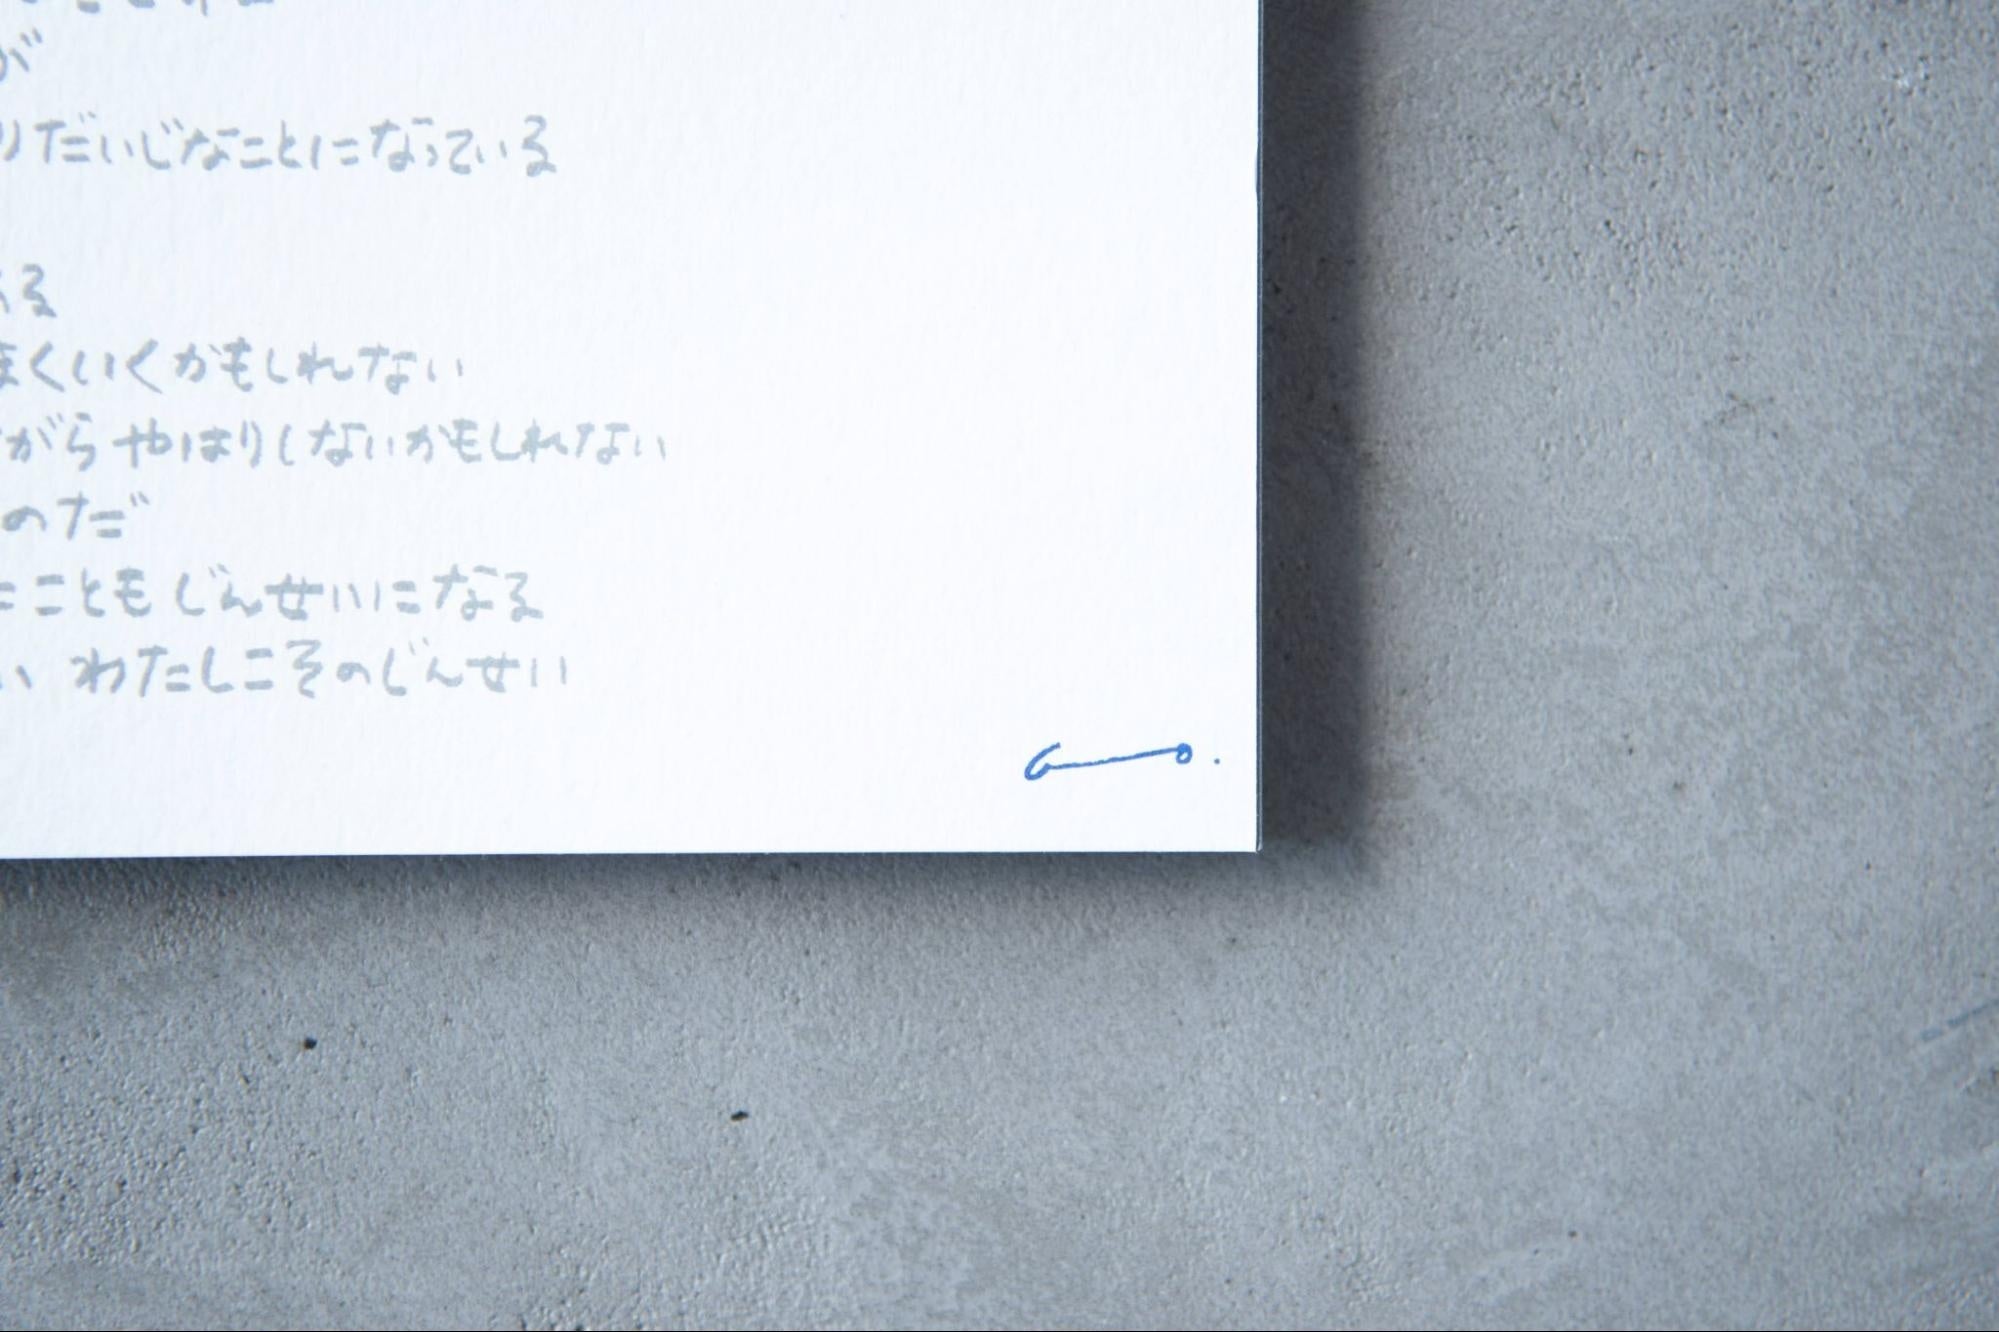 が
りだいじなことになっている
る
まくいくかもしれない
がら やはりしないかもしれない
のだ
たことも じんせいになる
い わたしこそのじんせい